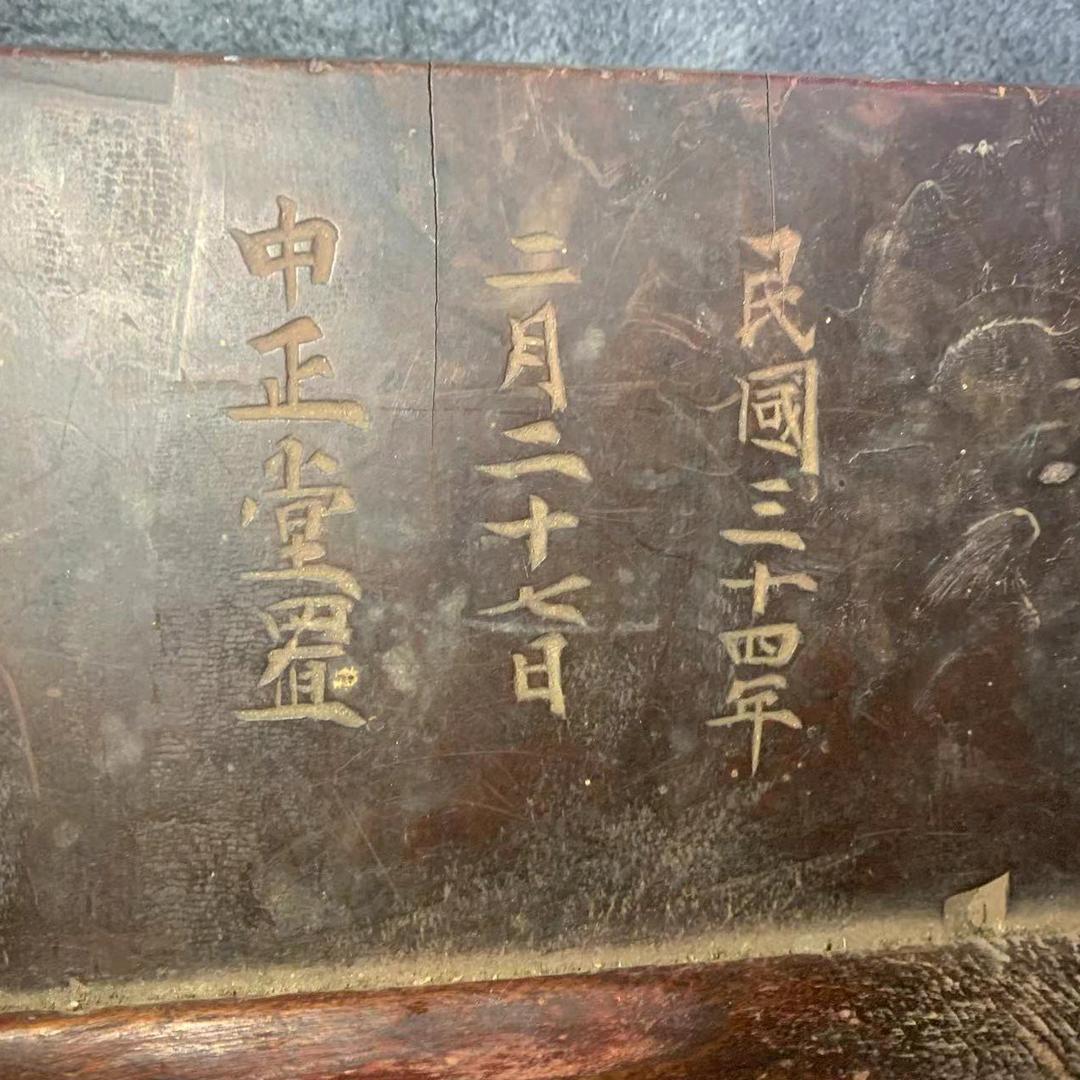 民國三十四年
二月二十七日
中正堂置